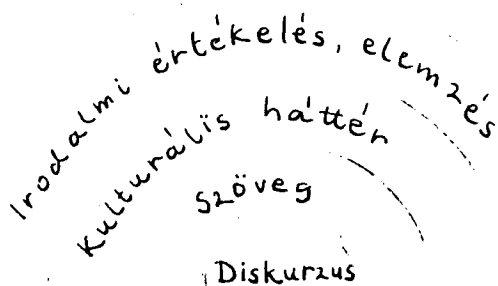 Irodalmi értékelés, elemzés
Kulturális háttér
Szöveg
Diskurzus